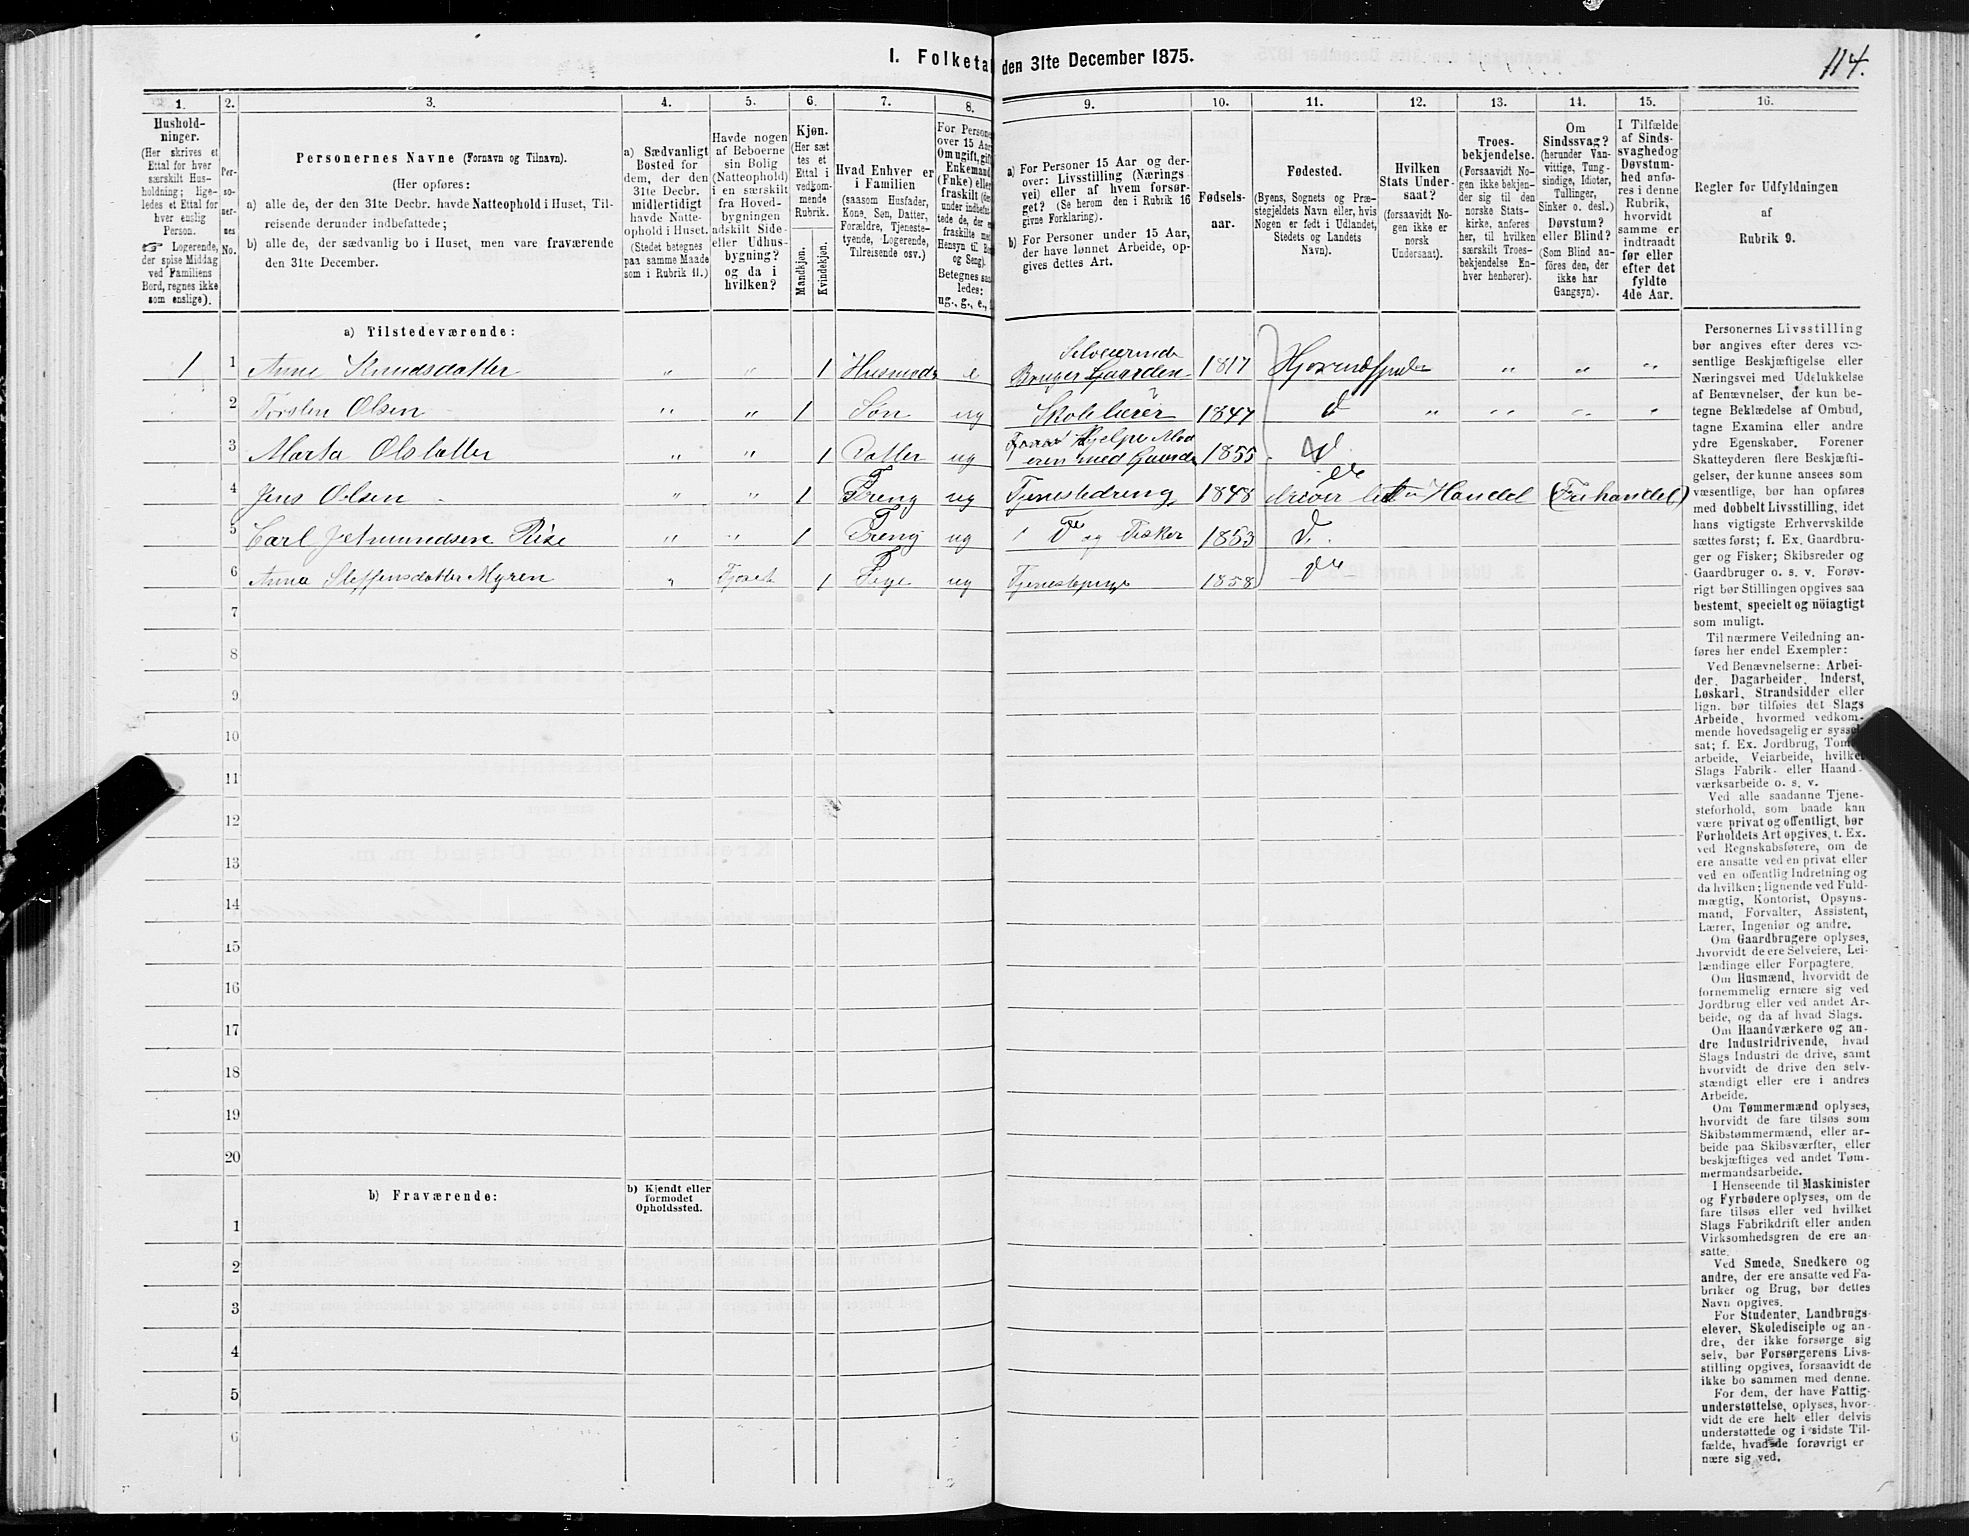 114.
I. Folketal den 31te December 1875.
1. 2. 3. 4. 5. 6. 7. 8. 9. 10. 11. 12. 13. 14. 15. 16.
Hushold-
ninger.
(Her skrives et
Ettal for hver
særskilt Hus-
holdning; lige-
ledes et Ettal for
hver enslig
Person.
☞ Logerende,
der spise Middag
ved Familiens
Bord, regnes ikke
som enslige).
Per-
so-
ner-
nes
No.
Personernes Navne (Fornavn og Tilnavn).
(Her opføres:
a) alle de, der den 31te Decbr. havde Natteophold i Huset, Til-
reisende derunder indbefattede;
b) alle de, der sædvanlig bo i Huset, men vare fraværende
den 31te December.
a) Sædvanligt
Bosted for
dem, der den
31te Decbr.
midlertidigt
havde Natte-
ophold i Huset.
(Stedet betegnes
paa samme Maade
som i Rubrik 11.)
Havde nogen
af Beboerne
sin Bolig
(Natteophold)
i en særskilt
fra Hoved-
bygningen
adskilt Side-
eller Udhus-
bygning?
og da i
hvilken?
Kjøn.
(Her sæt-
tes et
Ettal i
vedkom-
mende
Rubrik.
Mandkjøn.
Kvindekjøn.
Hvad Enhver er
i Familien
(saasom Husfader,
Kone, Søn, Datter,
Forældre, Tjeneste-
tyende, Logerende,
Tilreisende osv.)
For Persone
over 15 Aar
Om ugift, gift
Enkemand
(Enke) eller
fraskilt (der-
under indbefat-
tede de, der er
fraskilte med
Hensyn til Bo
og Seng).
Betegnes saa
ledes:
ug., g., e.,
a) For Personer 15 Aar og der-
over: Livsstilling (Nærings
vei) eller af hvem forsør-
get? (Se herom den i Rubrik 16
givne Forklaring).
b) For Personer under 15 Aar,
der have lønnet Arbeide, op-
gives dettes Art.
Fødsels-
aar.
Fødested.
(Byens, Sognets og Præ-
stegjeldets Navn eller, hvis
Nogen er født i Udlandet,
Stedets og Landets
Navn).
Hvilken
Stats Under-
saat?
(forsaavidt No-
gen ikke er
norsk
Undersaat).
Troes-
bekjendelse.
(Forsaavidt No-
gen ikke bekjen-
der sig til den
norske Stats-
kirke, anføres
her, til hvilken
særskilt Troes-
bekjendelse En-
hver henhører).
Om
Sindssvag?
(herunder Van-
vittige, Tung-
sindige, Idioter,
Tullinger,
Sinker o. desl.)
Døvstum?
eller Blind?
(Som Blind an-
føres den, der
ikke har
Gangsyn).
I Tilfælde
af Sinds-
svaghed og
Døvstum-
hed anfø-
res i denne
Rubrik,
hvorvidt
samme er
indtraadt
før eller
efter det
fyldte
4de Aar.
Regler for Udfyldningen
af
Rubrik 9.
a) Tilstedeværende:
1 1 Anne Knudsdatter „ „ 1 Husmoder e Selveiende Bruger Gaarden 1817 „ „ „
2 Torsten Olsen „ „ 1 Søn ug Skolelærer 1847 d „ „ „ „
3 Marta Olsdatter „ „ 1 Datter ug Hjelper Moderen med 1855 d
4 Jens Olsen „ „ 1 Dreng ug Tjenestedreng 1848 do driver lidt Handel
5 Carl Riise „ „ 1 Dreng ug do og Fisker 1853 d
6 Anna Steffensdatter Myren „ 1 Pige ug Tjenestepige 1858 do
7
8
9
10
11
12
13
14
15
16
17
18
19
20
b) Fraværende:
b) Kjendt eller
formodet
Opholdssted.
1
2
3
4
5
6
Personernes Livsstilling
bør angives efter deres væ-
sentlige Beskjæftigelse eller
Næringsvei med Udelukkelse
af Benævnelser, der kun be-
tegne Beklædelse af Ombud,
tagne Examina eller andre
ydre Egenskaber. Forener
Skatteyderen flere Beskjæfti-
gelser, der kunne ansees som
væsentlige, bør han opføres
med dobbelt Livsstilling, idet
hans vigtigste Erhvervskilde
sættes først; f. Ex. Gaardbru-
ger og Fisker; Skibsreder og
Gaardbruger o. s. v. Forøv-
rigt bør Stillingen opgives saa
bestemt, specielt og nöiagtigt
som muligt.
Til nærmere Veiledning an-
føres her endel Exempler:
Ved Benævnelserne: Arbei-
der, Dagarbeider, Inderst,
Løskarl, Strandsidder eller
lign. bør tilføies det Slags
Arbeide, hvormed vedkom-
mende hovedsagelig er syssel-
sat; f. Ex. Jordbrug, Tomt-
arbeide, Veiarbeide, hvilket
Slags Fabrik- eller Haand-
værksarbeide o. s. v.
Ved alle saadanne Tjene-
steforhold, som baade kan
være privat og offentligt, bør
Forholdets Art opgives, t. Ex.
ved Regnskabsførere, om de
ere ansatte ved en privat eller
ved en offentlig Indretning og
da hvilken; lignende ved Fuld-
mægtig, Kontorist, Opsyns-
mand, Forvalter, Assistent,
Lærer, Ingeniør og andre.
Om Gaardbrugere oplyses,
hvorvidt de ere Selveiere, Lei-
lændinge eller Forpagtere.
Om Husmænd, hvorvidt de
fornemmelig ernære sig ved
Jordbrug eller ved andet Ar-
beide, og da af hvad Slags.
Om Haandværkere og an-
dre Industridrivende, hvad
Slags Industri de drive, samt
hvorvidt de drive den selv-
stændigt eller ere i andres
Arbeide.
Om Tømmermænd oplyses,
hvorvidt de fare tilsøs som
Skibstømmermænd, eller ar-
beide paa Skibsværfter, eller
beskjæftiges ved andet Tøm-
mermandsarbeide.
I Henseende til Maskinister
og Fyrbødere oplyses, om de
fare tilsøs eller ved hvilket
Slags Fabrikdrift eller anden
Virksomhedsgren de ere an-
satte.
Ved Smede, Snedkere og
andre, der ere ansatte ved Fa-
briker og Brug, bør dettes
Navn opgives.
For Studenter, Landbrugs-
elever, Skoledisciple og an-
dre, der ikke forsørge sig
selv, bør Forsørgerens Livs-
stilling opgives, forsaavidt de
ikke bo sammen med denne.
For dem, der have Fattig-
understøttelse, oplyses, hvor-
vidt de ere helt eller delvis
understøttede og i sidste Til-
fælde, hvad de forøvrigt er
nære sig ved.